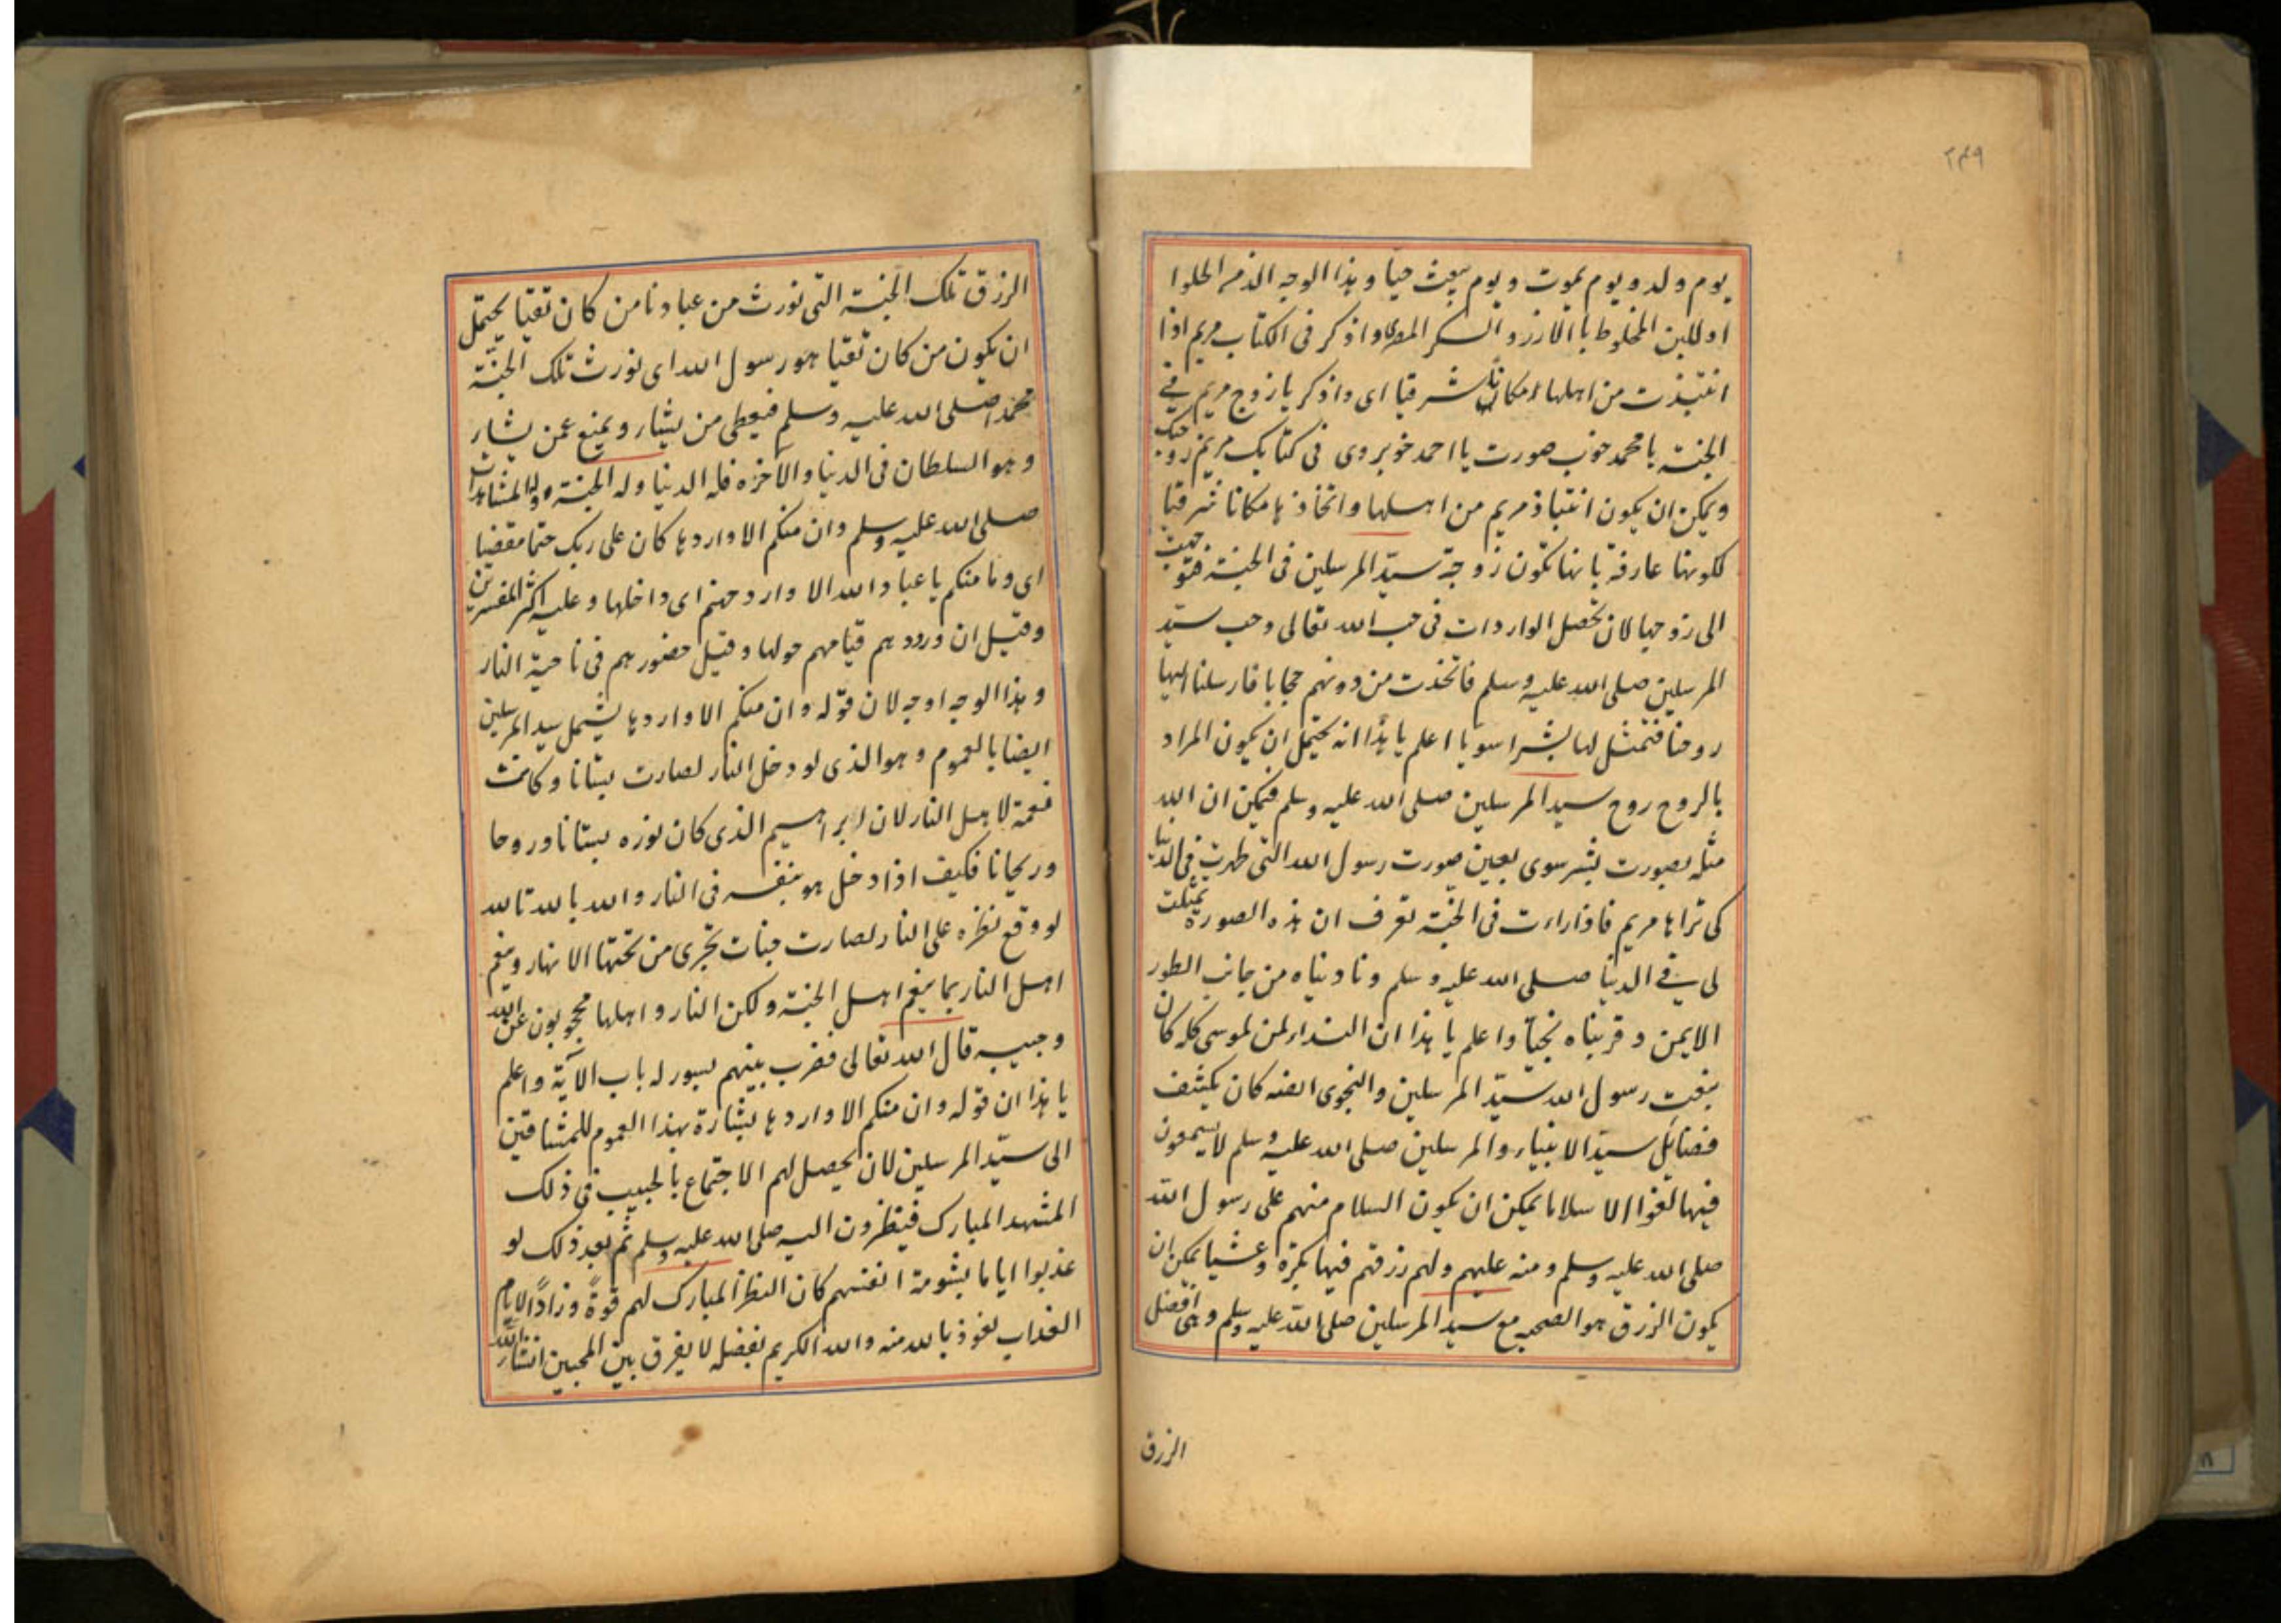 ۲۴۹
يوم ولد و يوم يموت و يوم يبعث حيا و هذا الوجه الذ من الحلوا
او للبن المخلوط با الارز و السكر المصرى واذكر فى الكتاب مريم اذا
انتبذت من اهلها مكانا شرقيا اى واذكر يا زوج مريم فے
الجنة يا محمد خوب صورت يا احمد خوبروى فى كتابك مريم زوجتك
ويمكن ان يكون انتباذ مريم من اهلها واتخاذها مكانا شرقيا
لكونها عارفة بانها تكون زوجة سيّد المرسلين فى الجنة فتوجهت
الى زوجها لان تحصل الواردات فى حب الله تعالى وحب سيّد
المرسلين صلى الله عليه وسلم فاتخذت من دونهم حجابا فارسلنا اليها
روحنا فتمثل لها بشرا سويا اعلم يا هذا انه يحتمل ان يكون المراد
بالروح روح سيد المرسلين صلى الله عليه وسلم فيمكن ان الله
مثله بصورت بشر سوى بعين صورت رسول الله التى ظهرت فى الدنيا
كى تراها مريم فاذا راءت فى الجنة تعرف ان هذه الصورة تمثلت
لى فے الدنيا صلى الله عليه وسلم وناديناه من جانب الطور
الايمن و قربناه نجيا واعلم يا هذا ان النداء لمن لموسى كله كان
بنعت رسول الله سيّد المرسلين والنجوى ايضه كان يكشف
فضائل سيّد الانبياء والمرسلين صلى الله عليه وسلم لا يسمعون
فيها لغوا الا سلاما يمكن ان يكون السلام منهم على رسول الله
صلى الله عليه وسلم و منه عليهم ولهم رزقهم فيها بكرة وعشيا يمكن ان
يكون الرزق هو الصحبه مع سيد المرسلين صلى الله عليه وسلم وهى افضل
الرزق
الرزق تلك الجنة التى نورث من عبادنا من كان تقيا يحتمل
ان يكون من كان تقيا هو رسول الله اى نورث تلك الجنّة
محمدا صلى الله عليه وسلم فيعطى من يشاء و يمنع عمن يشاء
و هو السلطان فى الدنيا والاخره فله الدنيا وله الجنة وله المشاهدات
صلى الله عليه وسلم وان منكم الا واردها كان على ربك حتما مقضيا
اى وما منكم يا عباد الله الا وارد جهنم اى داخلها و عليه اكثر المفسرين
وقيل ان ورودهم قيامهم حولها وقيل حضورهم فى ناحية النار
و هذا الوجه اوجه لان قوله وان منكم الا واردها يشمل سيد المرسلين
ايضا بالعموم و هو الذى لو دخل النار لصارت بستانا و كانت
نعمة لاهل النار لان ابراهيم الذى كان نوره بستانا وروحا
وريحانا فكيف اذا دخل هو بنفسه فى النار والله بالله تالله
لو وقع نظره على النار لصارت جنات تجرى من تحتها الانهار وينعم
اهل النار بما ينعم اهل الجنة ولكن النار و اهلها محجوبون عن الله
وحبيبه قال الله تعالى فضرب بينهم بسور له باب الآية واعلم
يا هذا ان قوله وان منكم الا واردها بشارة بهذا العموم للمشتاقين
الى سيّد المرسلين لان يحصل لهم الاجتماع بالحبيب فى ذلك
المشهد المبارك فينظرون اليه صلى الله عليه وسلم ثم بعد ذلك لو
عذبوا اياما بشومة انفسهم كان النظر المبارك لهم قوةً وزاداً لايام
العذاب نعوذ بالله منه والله الكريم بفضله لا يفرق بين المحبين انشاء الله